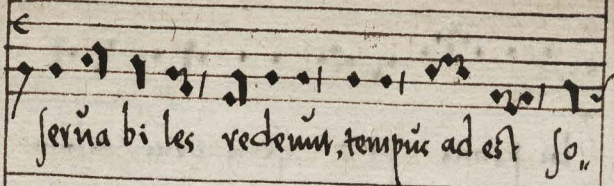 serũa bi les redeũnt, tempus ad est so,,